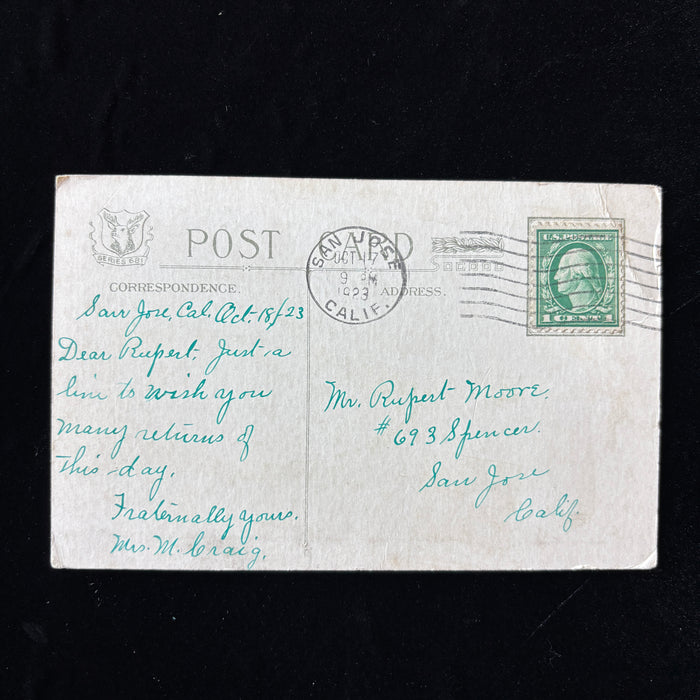 POST CARD
SERIES 681
CORRESPONDENCE.
ADDRESS.
SAN JOSE
OCT 17
9 PM
1923
CALIF.
U.S. POSTAGE
1 CENT 1
San Jose, Cal. Oct. 18/23
Dear Rupert, Just a
line to wish you
many returns of
this-day.
Fraternally yours.
Mrs. M. Craig.
Mr. Rupert Moore.
#693 Spencer.
San Jose
Calif.